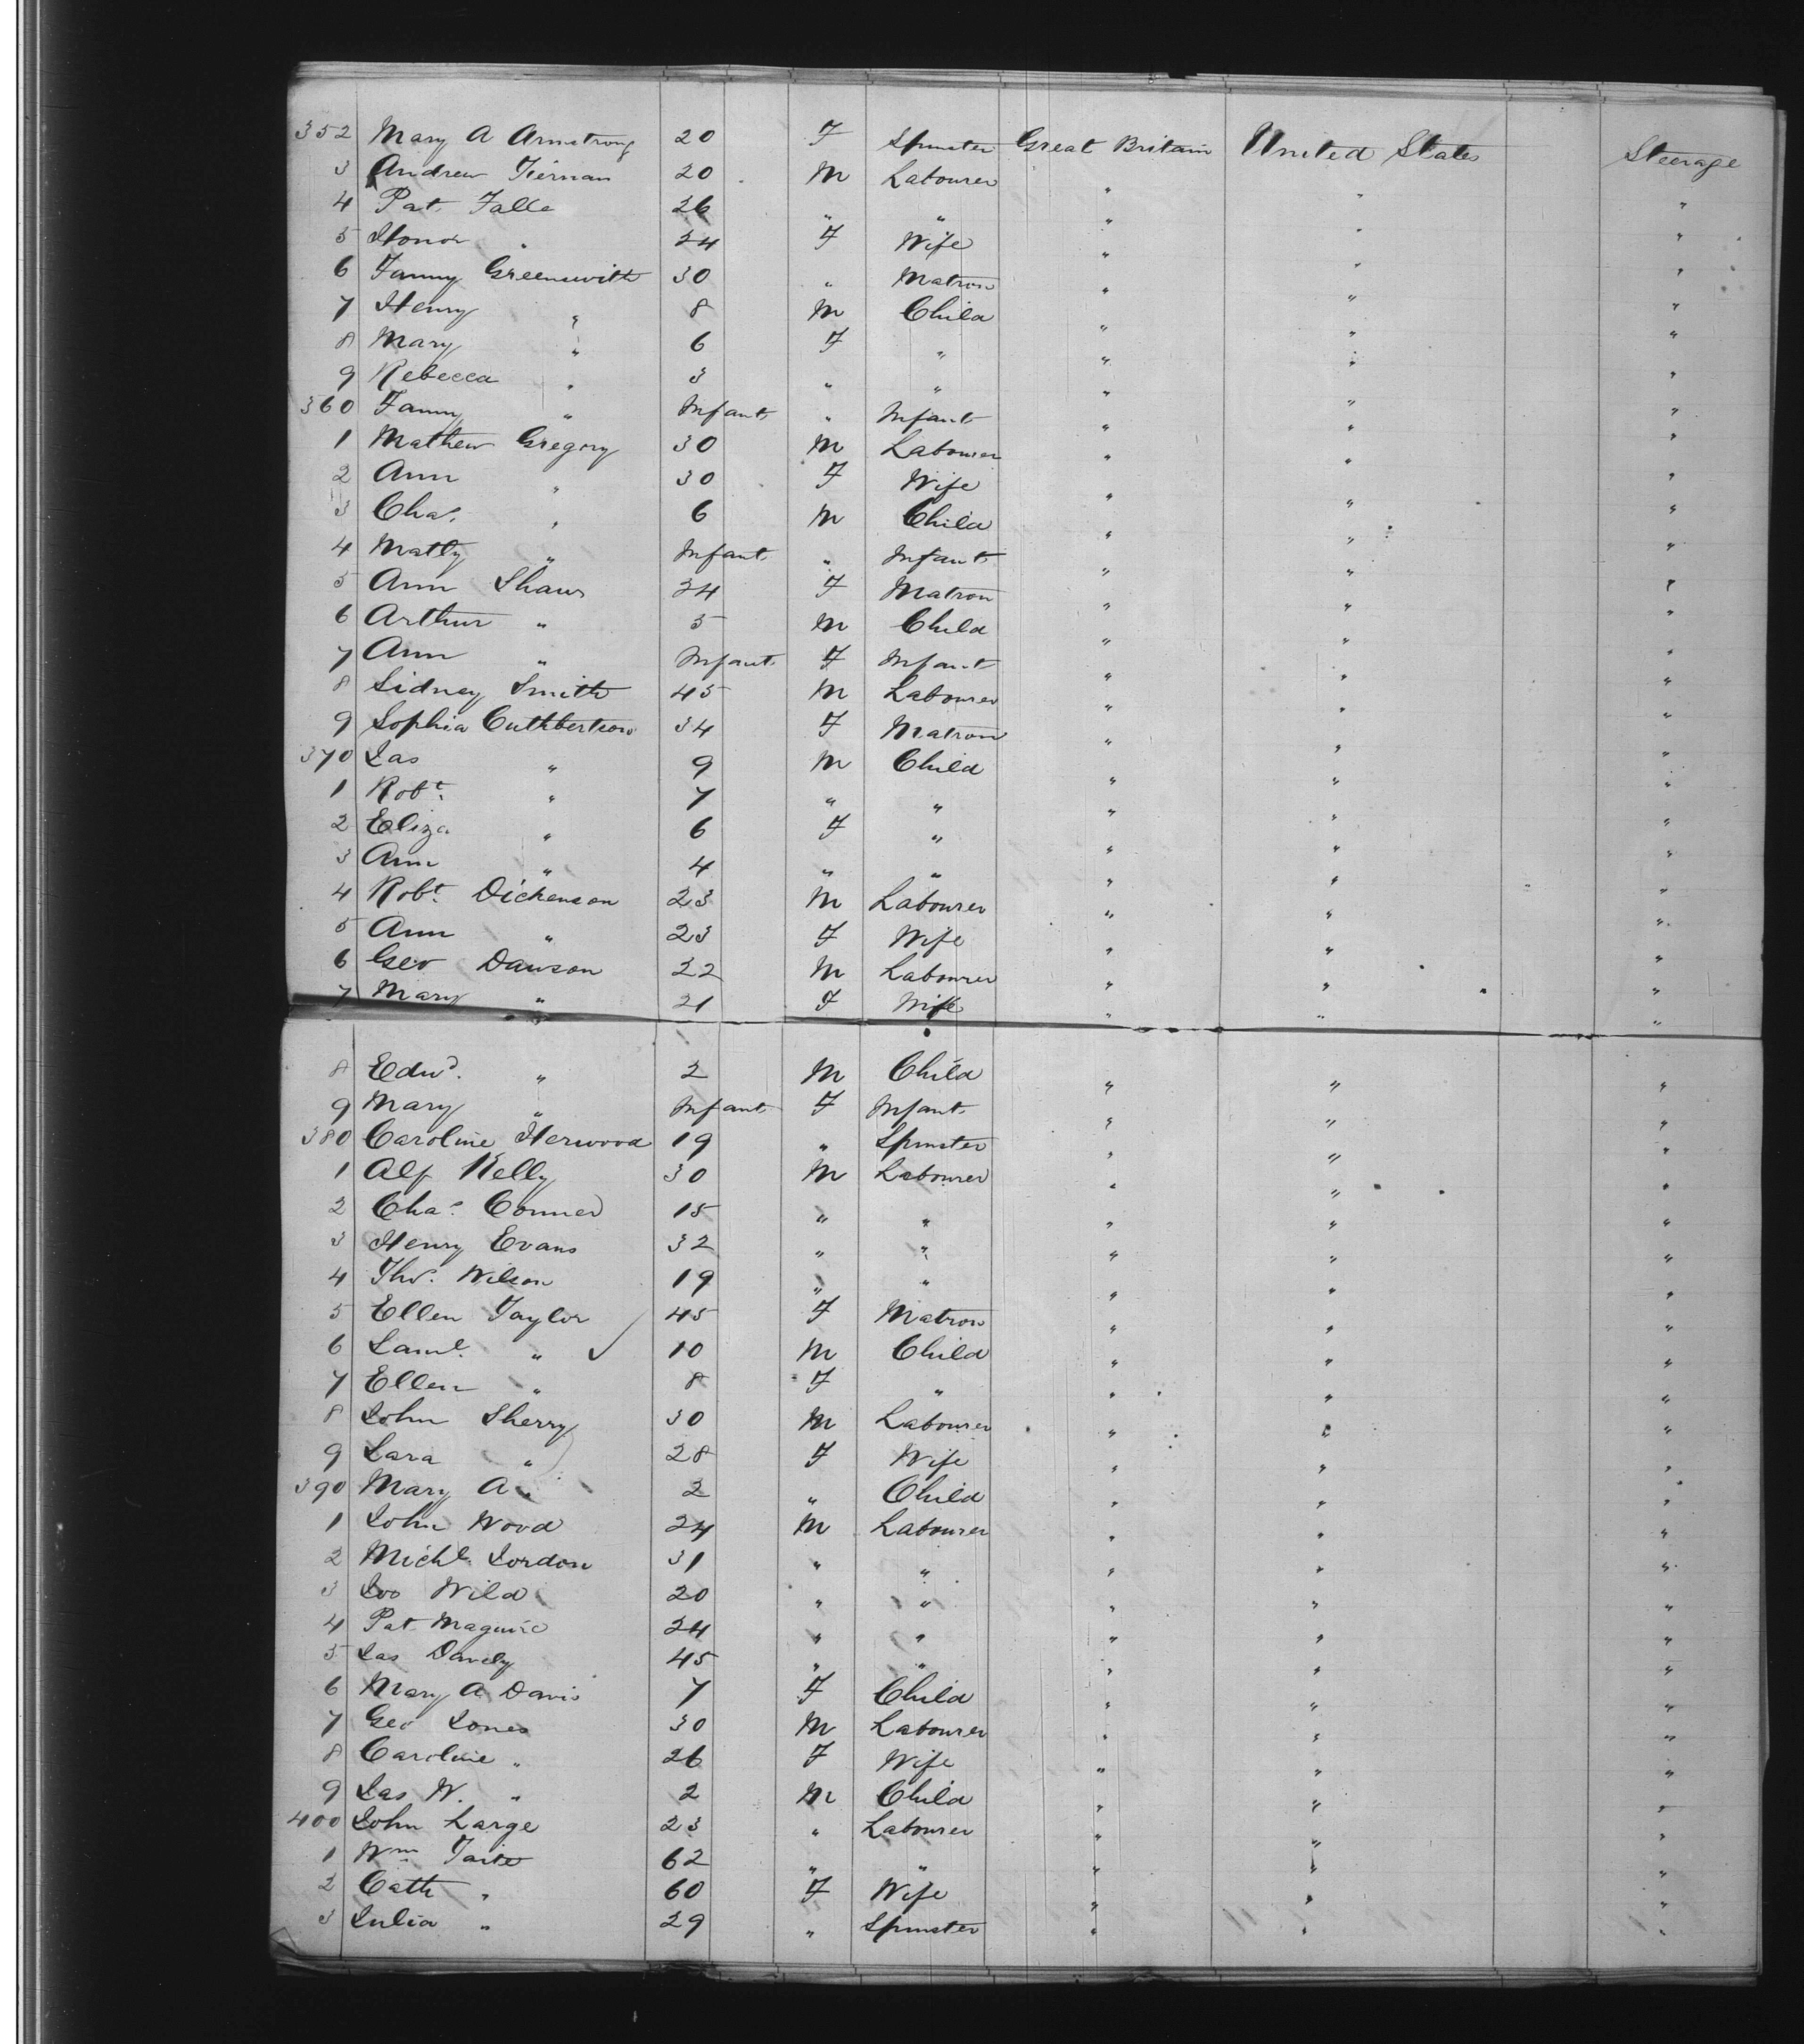 352 Mary A Armstrong 20 F Spinster Great Britain United States Steerage
3 Andrew Tiernan 20 M Labourer " " "
4 Pat. Falle 26 " " " " "
5 Honor " 24 F Wife " " "
6 Fanny Greenswith 30 " Matron " " "
7 Henry " 8 M Child " " "
8 Mary " 6 F " " " "
9 Rebecca " 3 " " " " "
360 Fanny " Infant " Infant " " "
1 Mathew Gregory 30 M Labourer " " "
2 Ann " 30 F Wife " " "
3 Chas. " 6 M Child " " "
4 Matty " Infant " Infant " " "
5 Ann Shaw 24 F Matron " " "
6 Arthur " 5 M Child " " "
7 Ann " Infant F Infant " " "
8 Sidney Smith 45 M Labourer " " "
9 Sophia Cuthbertson 34 F Matron " " "
370 Jas " 9 M Child " " "
1 Robt. " 7 " " " " "
2 Eliza " 6 F " " " "
3 Ann " 4 " " " " "
4 Robt. Dickenson 23 M Labourer " " "
5 Ann " 23 F Wife " " "
6 Geo Dawson 22 M Labourer " " "
7 Mary " 21 F Wife " " "
8 Edwd. " 2 M Child " " "
9 Mary " Infant F Infant " " "
380 Caroline Herwood 19 " Spinster " " "
1 Alf Kelly 30 M Labourer " " "
2 Chas. Conner 15 " " " " "
3 Henry Evans 32 " " " " "
4 Thos. Wilson 19 " " " " "
5 Ellen Taylor 45 F Matron " " "
6 Saml. " ✓ 10 M Child " " "
7 Ellen " 8 F " " " "
8 John Sherry 30 M Labourer " " "
9 Sara " 28 F Wife " " "
390 Mary A " 2 " Child " " "
1 John Wood 24 M Labourer " " "
2 Michl. Jordon 31 " " " " "
3 Joo Wild 20 " " " " "
4 Pat Maguire 24 " " " " "
5 Jas 45 " " " " "
6 Mary A Davis 7 F Child " " "
7 Geo Jones 30 M Labourer " " "
8 Caroline " 26 F Wife " " "
9 Jas W. " 2 M Child " " "
400 John Large 23 " Labourer " " "
1 Wm Taite 62 " " " " "
2 Cath " 60 F Wife " " "
3 Julia " 29 " Spinster " " "